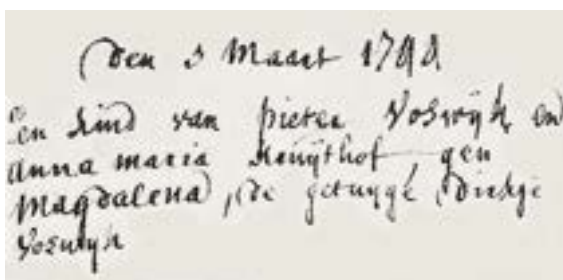 den 3 Maart
Een kind van pieter Voswijk en
anna maria Kruijthof, gen
Magdalena, de getuyge, Dirkje
Voswyk